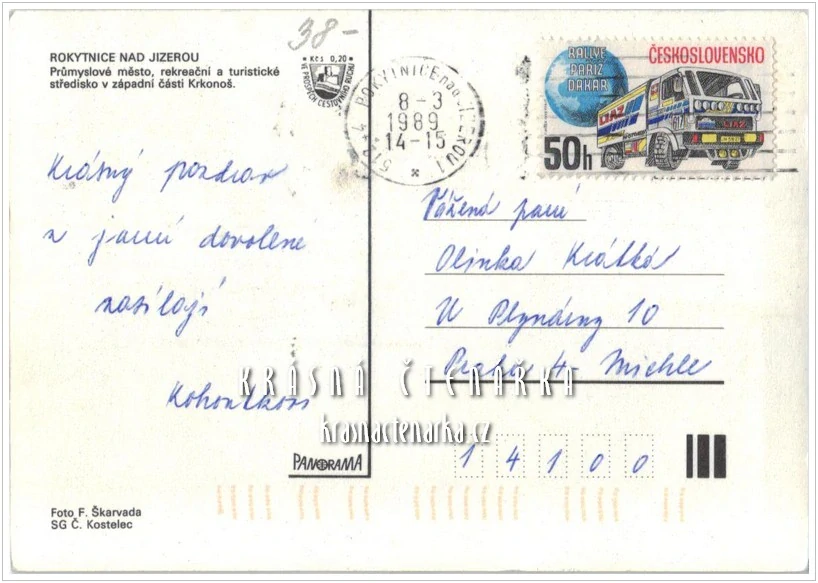 38-
ROKYTNICE NAD JIZEROU
Průmyslové město, rekreační a turistické
středisko v západní části Krkonoš.
Kčs 0,20
VE PROSPĚCH CESTOVNÍHO RUCHU
ROKYTNICE nad JIZEROU 1
8-3
1989
14-15
RALLYE
PAŘÍŽ
DAKAR
ČESKOSLOVENSKO
LIAZ
50h
Krásný pozdrav
z jarní dovolené
zasílají
Kohoutkovi
Vážená paní
Olinka Krátká
U Plynárny 10
Praha 4 Michle
14100
KRÁSNÁ ČTENÁŘKA
krasnactenarka.cz
PANORAMA
Foto F. Škarvada
SG Č. Kostelec